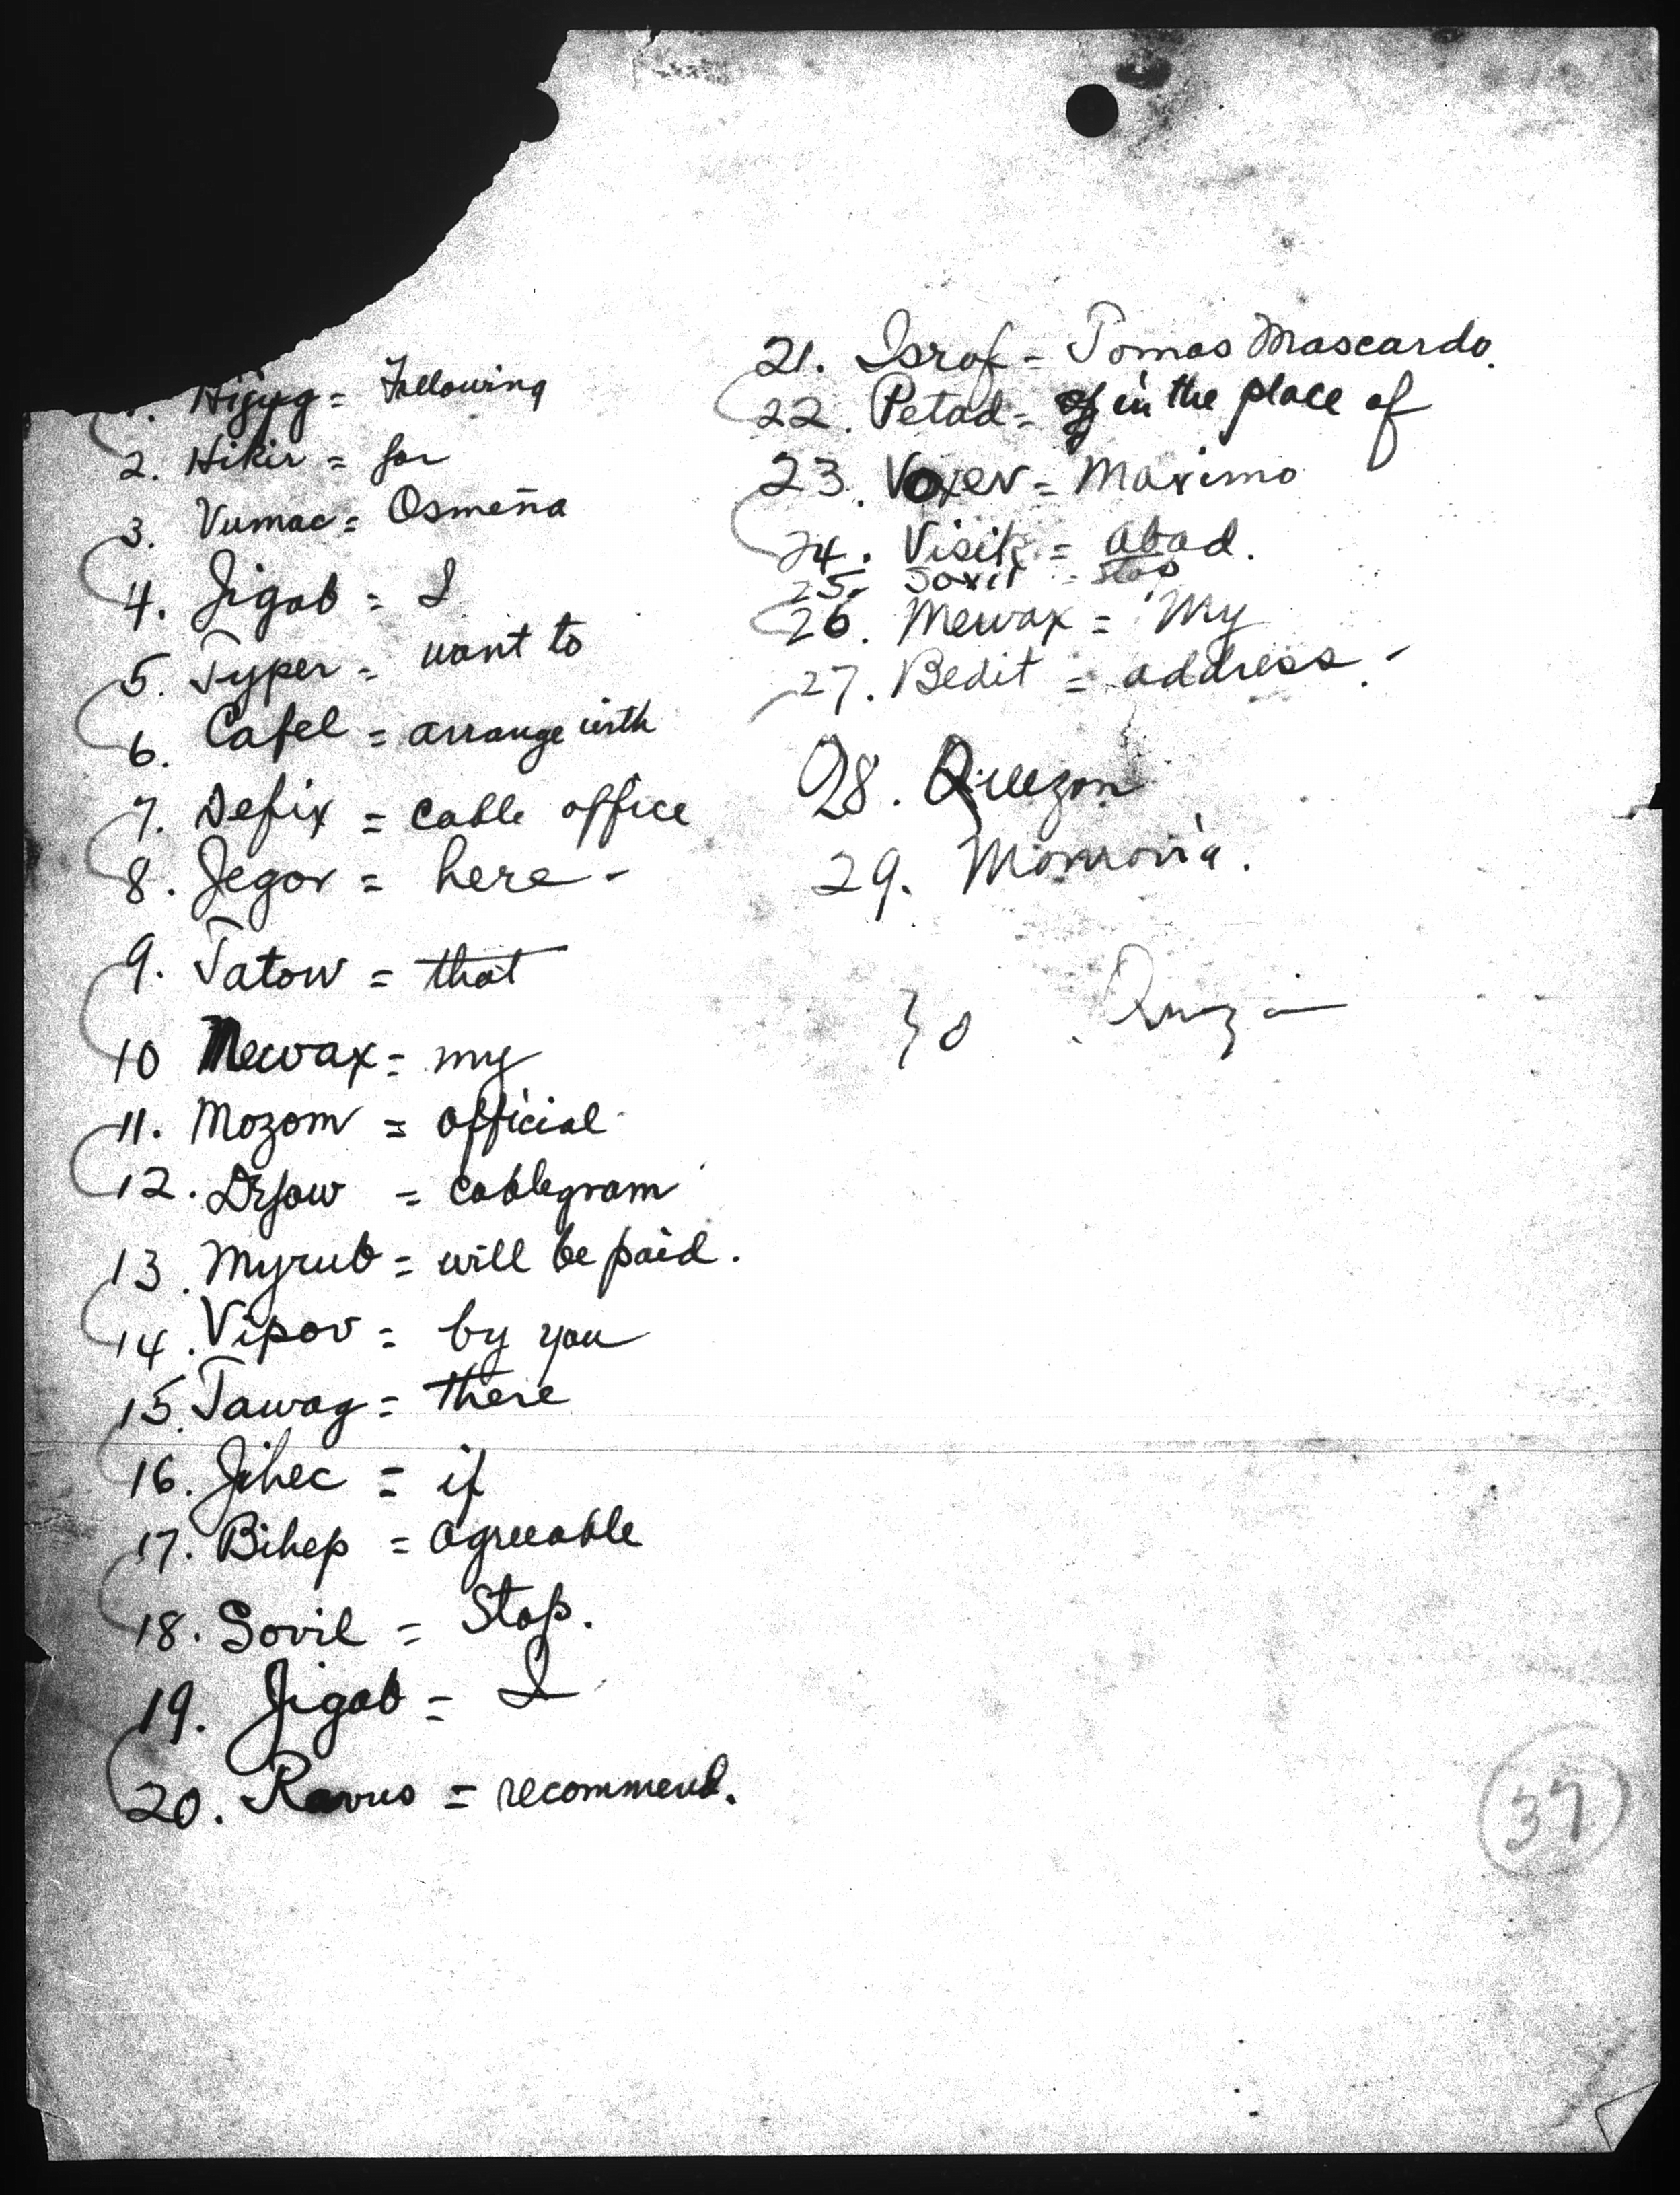 1. Hijyg = Following
2. Hikir = for
3. Vumac = Osmeña
4. Jigab = I
5. Typer = want to
6. Cafel = arrange with
7. Defix = cable office
8. Jegov = here -
9. Tatow = that
10 Mewax = my
11. Mozom = official
12. = cablegram
13. Myrub = will be paid.
14. Vipov = by you
15. Tawag = there
16. Jihec = if
17. Bihep = agreeable
18. Sovil = Stop.
19. Jigab = I
20. = recommend.
21. Isrof = Tomas Mascardo.
22. Petad = in the place of
23. Voxev = Maximo
24. = Abad.
25. = stop
26. Mewax = My
27. Bedit = address. -
28. Quezon
29. Monrovia.
30 .
37